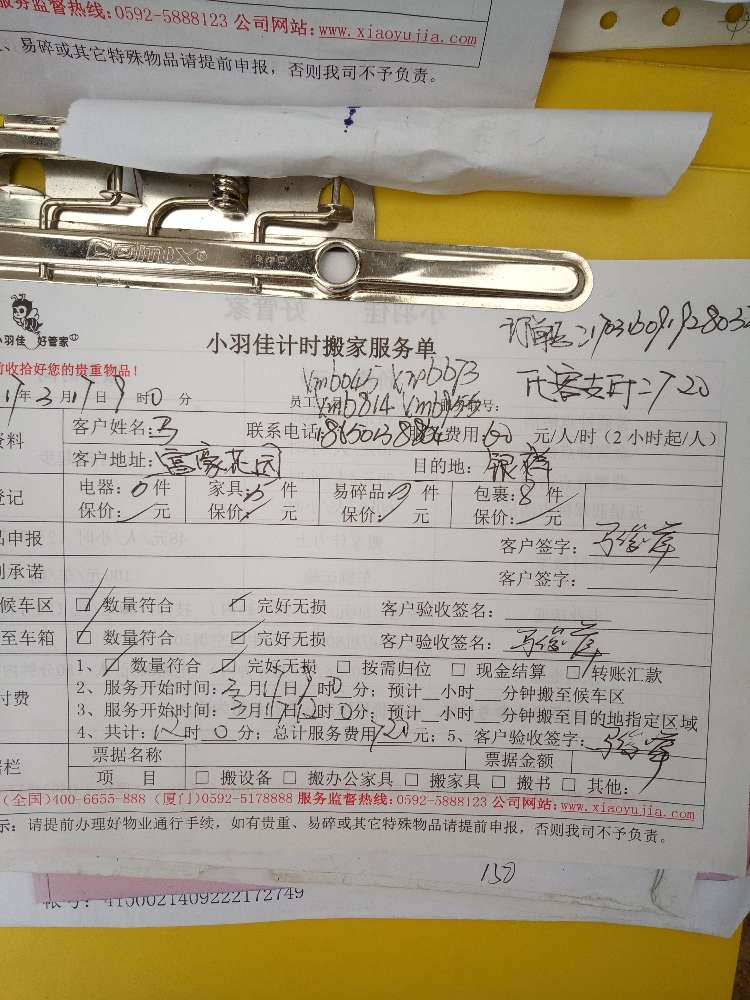 服务监督热线:0592-5888123 公司网站:www.xiaoyujia.com
、易碎或其它特殊物品请提前申报，否则我司不予负责。
comix
小羽佳 好管家
小羽佳计时搬家服务单
前收拾好您的贵重物品！
17年3月17日9时0分
员工
Vm6045
Vm6814
720
客户姓名:马 联系电话: 服务费用:60 元/人/时（2小时起/人）
客户地址:富豪花园 目的地:银祥
电器:0件 家具:5件 易碎品: 件 包裹:8件
保价: 元 保价: 元 保价: 元 保价: 元
品申报 客户签字:
承诺 客户签字:
候车区 □ 数量符合 □ 完好无损 客户验收签名:
至车箱 □ 数量符合 □ 完好无损 客户验收签名:
付费
1、□ 数量符合 □ 完好无损 □ 按需归位 □ 现金结算 □ 转账汇款
2、服务开始时间:3月17日9时0分；预计 小时 分钟搬至候车区
3、服务开始时间:3月17日12时0分；预计 小时 分钟搬至目的地指定区域
4、共计:12时0分；总计服务费用720元；5、客户验收签字:
票据名称 票据金额
项 目 □ 搬设备 □ 搬办公家具 □ 搬家具 □ 搬书 □ 其他:
(全国)400-6655-888 (厦门)0592-5178888 服务监督热线:0592-5888123 公司网站:www.xiaoyujia.com
示: 请提前办理好物业通行手续，如有贵重、易碎或其它特殊物品请提前申报，否则我司不予负责。
150
帐号: 4150021409222172749